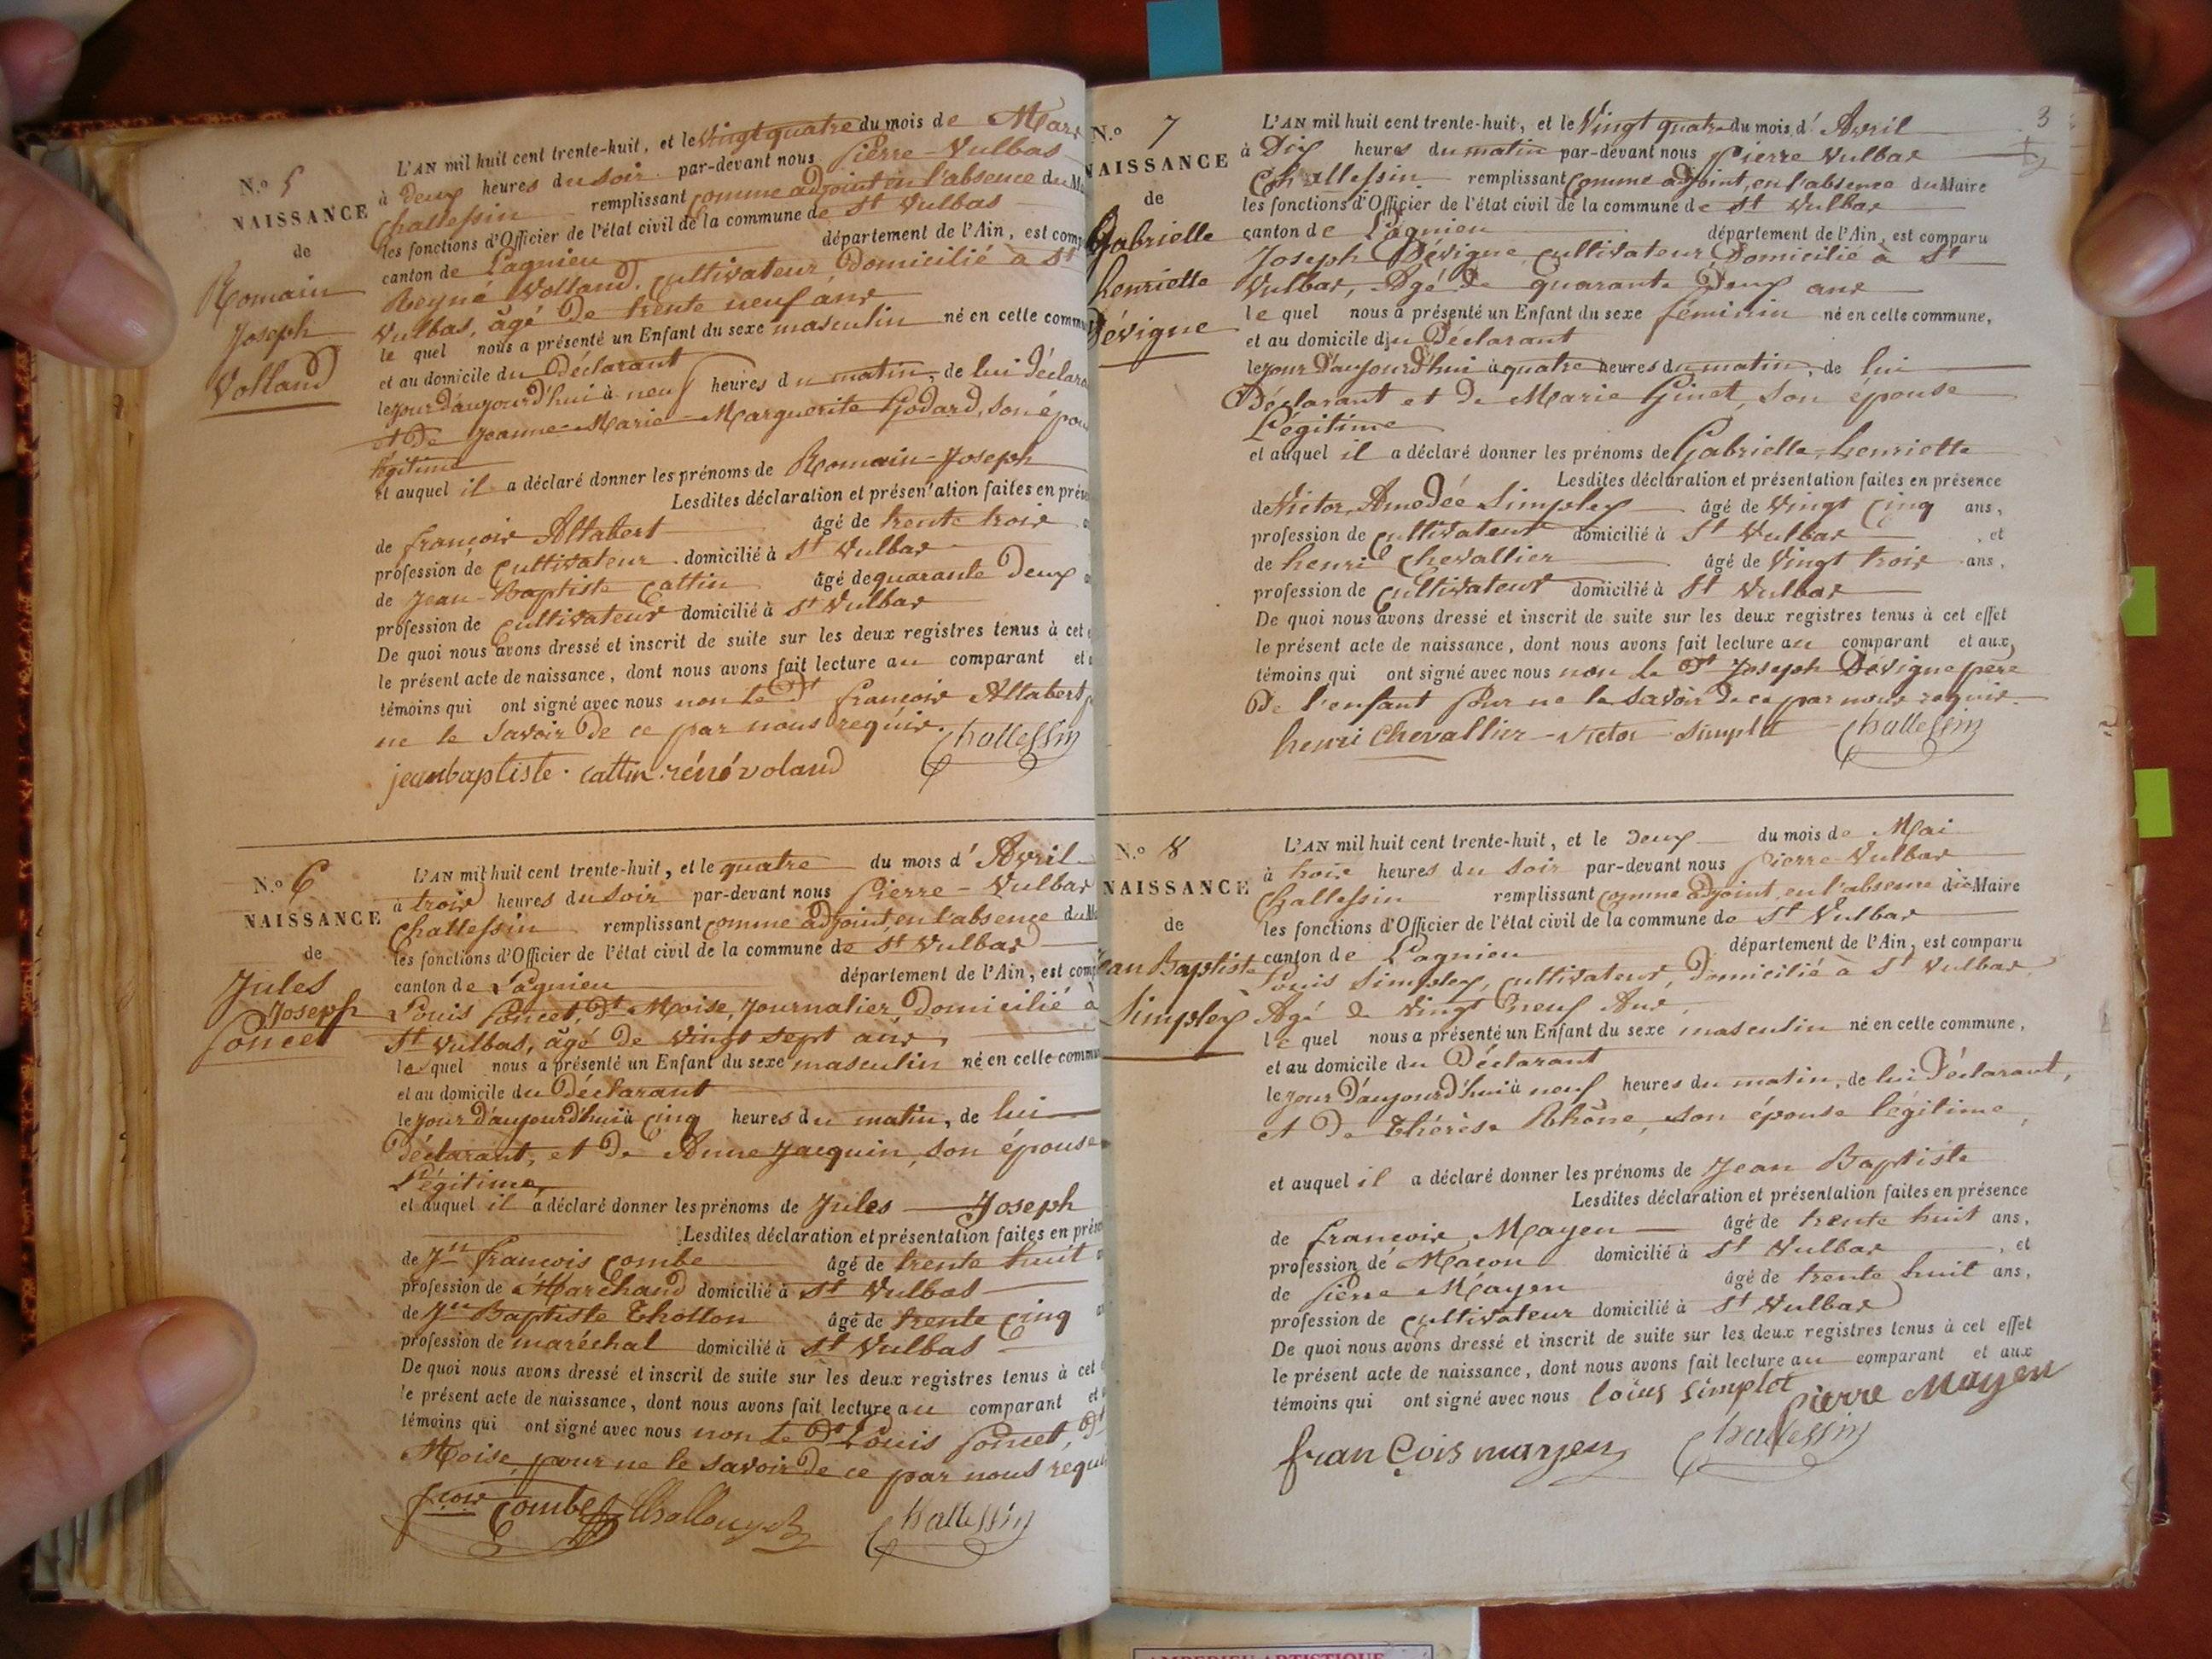 N.º 5
NAISSANCE
de
Romain
Joseph
Volland
L'AN mil huit cent trente-huit, et le Vingt quatre du mois de Mars
à deux heures du soir par-devant nous Pierre-Vulbas
Challessin remplissant comme adjoint en l'absence du
les fonctions d'Officier de l'état civil de la commune de St Vulbas
canton de Lagnieu département de l'Ain, est
Reyné Volland, Cultivateur, Domicilié à St
Vulbas, âgé De trente neuf ans
le quel nous a présenté un Enfant du sexe masculin né en cette
et au domicile du Déclarant
le jour d'aujourd'hui à neuf heures du matin, de lui
et De Jeanne-Marie-Marguerite Godard, son
légitime
et auquel il a déclaré donner les prénoms de Romain-Joseph
Lesdites déclaration et présentation faites en
de françois Altabert âgé de trente trois
profession de Cultivateur domicilié à St Vulbas
de Jean-Baptiste Cattin âgé de quarante Deux
profession de Cultivateur domicilié à St Vulbas
De quoi nous avons dressé et inscrit de suite sur les deux registres tenus à cet
le présent acte de naissance, dont nous avons fait lecture au comparant et
témoins qui ont signé avec nous non le Dt françois Altabert
ne le savoir De ce par nous requis. Challessin
jeanbaptiste cattin réné voland
N.º 6
NAISSANCE
de
Jules
Joseph
Poncet
L'AN mil huit cent trente-huit, et le quatre du mois d'Avril
à trois heures du soir par-devant nous Pierre-Vulbas
Challessin remplissant comme adjoint, en l'absence du
les fonctions d'Officier de l'état civil de la commune de St Vulbas
canton de Lagnieu département de l'Ain, est
Louis Poncet, Dt Moise, Journalier, Domicilié à
St Vulbas, âgé De Vingt sept ans
le quel nous a présenté un Enfant du sexe masculin né en cette
et au domicile du Déclarant
le jour d'aujourd'hui à Cinq heures du matin, de lui
Déclarant, et De Anne Jacquin, son épouse
Légitime,
et auquel il a déclaré donner les prénoms de Jules Joseph
Lesdites déclaration et présentation faites en
de Jn François Combe âgé de trente huit
profession de Marchand domicilié à St Vulbas
de Jn Baptiste Thollon âgé de trente Cinq
profession de maréchal domicilié à St Vulbas
De quoi nous avons dressé et inscrit de suite sur les deux registres tenus à cet
le présent acte de naissance, dont nous avons fait lecture au comparant et
témoins qui ont signé avec nous non le Dt Louis Poncet, Dt
Moise, pour ne le savoir De ce par nous
fcois Combe Challessin
3
N.º 7
NAISSANCE
de
Gabrielle
henriette
Dévigne
L'AN mil huit cent trente-huit, et le Vingt quatre du mois d'Avril
à Dix heures du matin par-devant nous Pierre Vulbas
Challessin remplissant Comme adjoint, en l'absence du Maire
les fonctions d'Officier de l'état civil de la commune de St Vulbas
canton de Lagnieu département de l'Ain, est comparu
Joseph Dévigne Cultivateur, Domicilié à St
Vulbas, Agé De quarante Deux ans
le quel nous a présenté un Enfant du sexe féminin né en cette commune,
et au domicile du Déclarant
le jour d'aujourd'hui à quatre heures du matin, de lui
Déclarant et De Marie Ginet, son épouse
Légitime
et auquel il a déclaré donner les prénoms de Gabrielle-henriette
Lesdites déclaration et présentation faites en présence
de Victor Amedée Simplex âgé de Vingt Cinq ans,
profession de Cultivateur domicilié à St Vulbas, et
de henri Chevallier âgé de Vingt trois ans,
profession de Cultivateur domicilié à St Vulbas
De quoi nous avons dressé et inscrit de suite sur les deux registres tenus à cet effet
le présent acte de naissance, dont nous avons fait lecture au comparant et aux
témoins qui ont signé avec nous non le Dt Joseph Dévigne père
De l'enfant Pour ne le savoir De ce par nous requis.
henri Chevallier - victor simplet Challessin
N.º 8
NAISSANCE
de
Jean Baptiste
Simplex
L'AN mil huit cent trente-huit, et le Deux du mois de Mai
à trois heures du soir par-devant nous Pierre-Vulbas
Challessin remplissant comme adjoint, en l'absence du Maire
les fonctions d'Officier de l'état civil de la commune de St Vulbas
canton de Lagnieu département de l'Ain, est comparu
Louis Simplex, Cultivateur, Domicilié à St Vulbas
Agé De Vingt neuf Ans,
le quel nous a présenté un Enfant du sexe masculin né en cette commune,
et au domicile du Déclarant
le jour D'aujourd'hui à neuf heures du matin, de lui Déclarant,
et De Thérèse Rhône, son épouse légitime,
et auquel il a déclaré donner les prénoms de Jean Baptiste
Lesdites déclaration et présentation faites en présence
de françois Mayen âgé de trente huit ans,
profession de Macon domicilié à St Vulbas, et
de Pierre Mayen âgé de trente huit ans,
profession de Cultivateur domicilié à St Vulbas
De quoi nous avons dressé et inscrit de suite sur les deux registres tenus à cet effet
le présent acte de naissance, dont nous avons fait lecture au comparant et aux
témoins qui ont signé avec nous loius simplet pierre Mayen
françois mayen Challessin